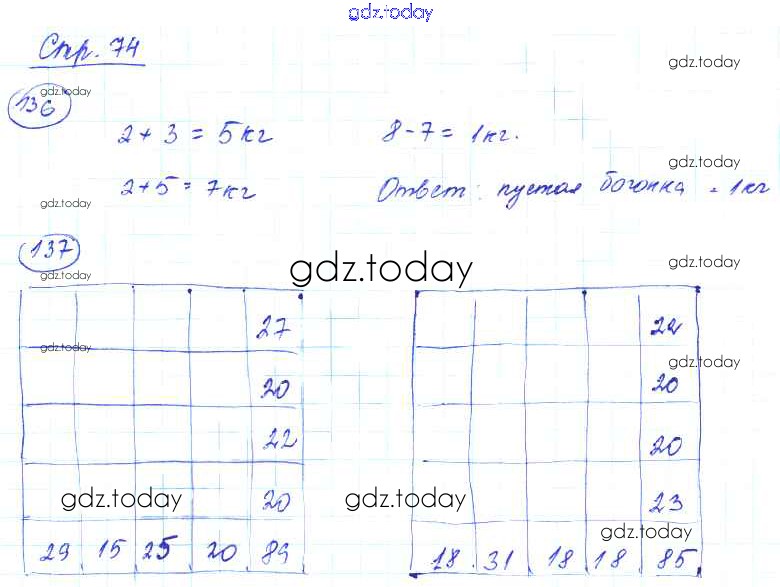 gdz.today
Стр. 74
gdz.today
gdz.today
136
2 + 3 = 5 кг 8 - 7 = 1 кг.
gdz.today
2 + 5 = 7 кг Ответ: пустая бочонка = 1 кг
gdz.today
137
gdz.today
gdz.today
gdz.today
27 22
gdz.today
gdz.today
20 20
22 20
gdz.today
gdz.today
20 23
gdz.today
29 15 25 20 89 18 31 18 18 85